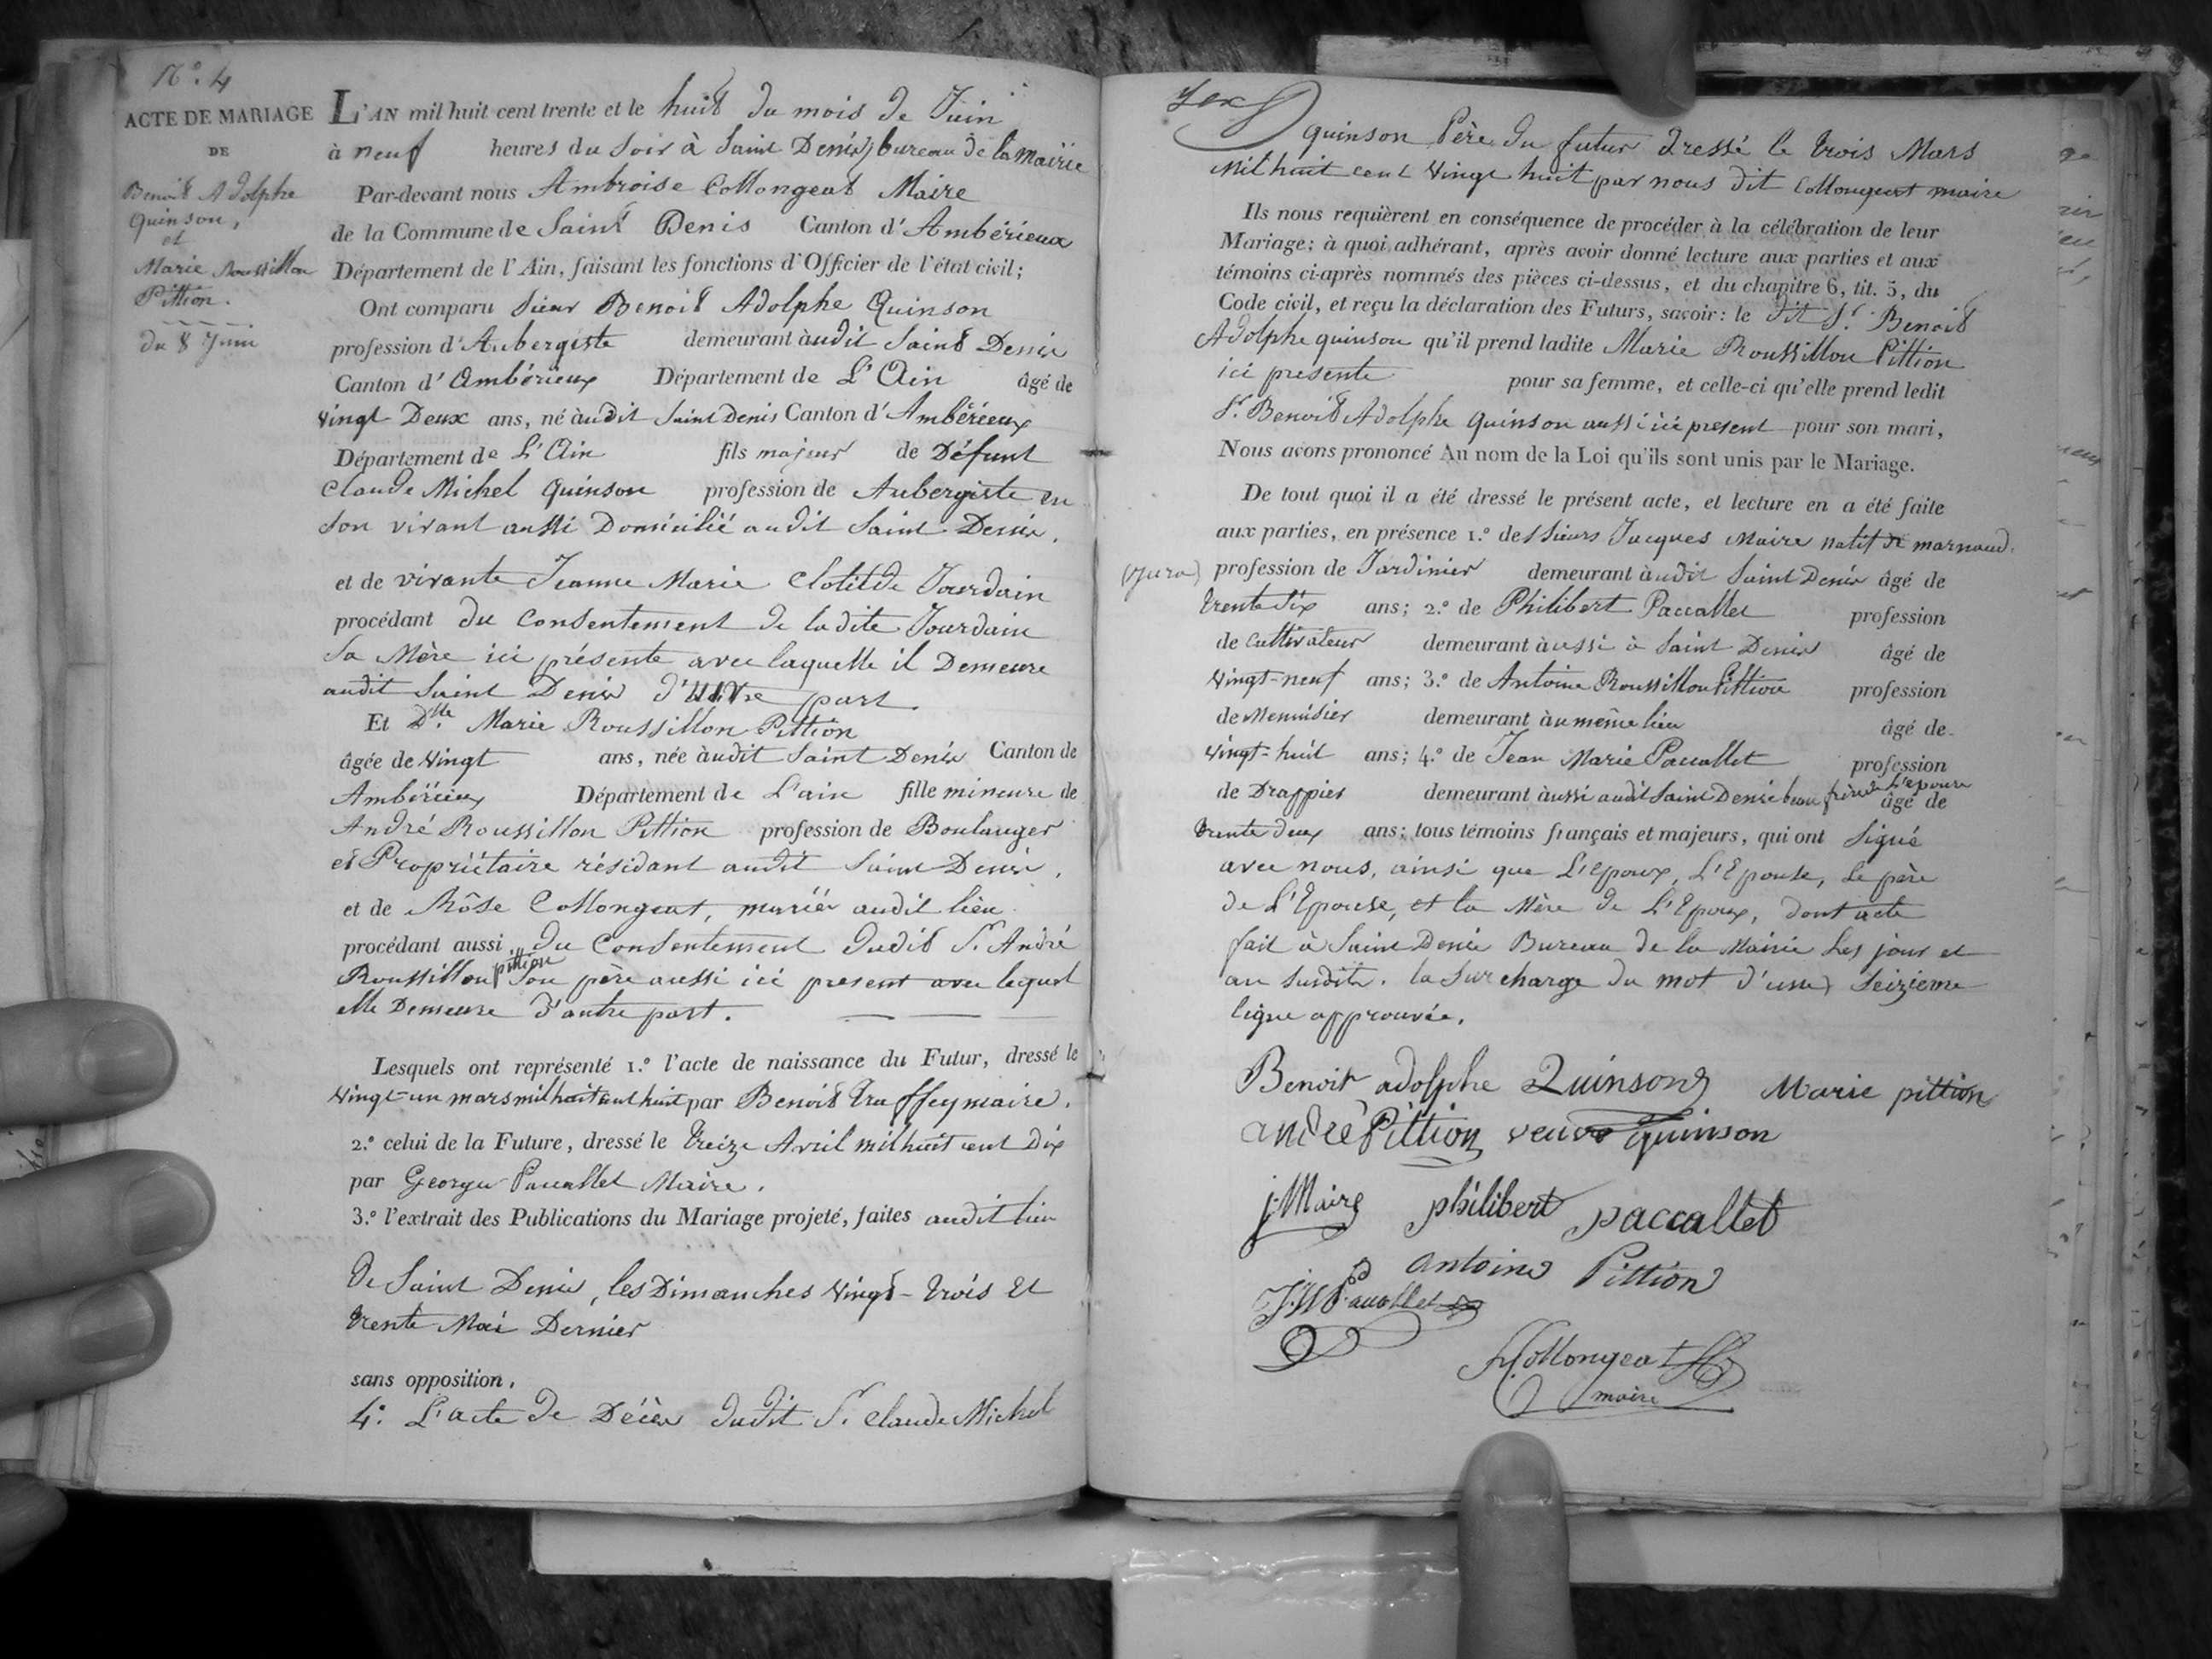 N°. 4
ACTE DE MARIAGE
DE
Benoit Adolphe
Quinson,
et
Marie Roussillon
Pittion.
du 8 Juin
L'AN mil huit cent trente et le huit du mois de Juin
à neuf heures du Soir à Saint Denis, bureau de la mairie
Par-devant nous Ambroise Collongeat Maire
de la Commune de Saint Denis Canton d'Ambérieux
Département de l'Ain, faisant les fonctions d'Officier de l'état civil;
Ont comparu Sieur Benoit Adolphe Quinson
profession d'Aubergiste demeurant àudit Saint Denis
Canton d'Ambérieux Département de L'Ain âgé de
vingt Deux ans, né àudit Saint Denis Canton d'Ambérieux
Département de L'Ain fils majeur de Défunt
Claude Michel Quinson profession de Aubergiste en
Son vivant aussi Domicilié audit Saint Denis.
et de vivante Jeanne Marie Clotilde Jourdain
procédant du Consentement de ladite Jourdain
Sa Mère ici présente avec laquelle il Demeure
audit Saint Denis d'une part
Et Dlle Marie Roussillon Pittion
âgée de vingt ans, née àudit Saint Denis Canton de
Ambérieux Département de L'ain fille mineure de
André Roussillon Pittion profession de Boulanger
et Propriétaire résidant audit Saint Denis.
et de Rôse Collongeat, mariés audit lieu
procédant aussi du Consentement dudit Sr. André
Roussillon pittion Son père aussi ici present avec lequel
elle Demeure d'autre part.
Lesquels ont représenté 1.° l'acte de naissance du Futur, dressé le
vingt-un mars mil huit cent huit par Benoit Truffey maire.
2.° celui de la Future, dressé le treize Avril mil huit cent Dix
par George Paccallet Maire.
3.° l'extrait des Publications du Mariage projeté, faites audit lieu
de Saint Denis, les Dimanches vingt-trois et
trente Mai Dernier
sans opposition.
4.° L'acte de Décès dudit Sr. Claude Michel
quinson Père du futur dressé le trois Mars
mil huit cent vingt huit par nous dit Collongeat maire
Ils nous requièrent en conséquence de procéder à la célébration de leur
Mariage; à quoi adhérant, après avoir donné lecture aux parties et aux
témoins ci-après nommés des pièces ci-dessus, et du chapitre 6, tit. 5, du
Code civil, et reçu la déclaration des Futurs, savoir: le dit Sr. Benoit
Adolphe quinson qu'il prend ladite Marie Roussillon Pittion
ici presente pour sa femme, et celle-ci qu'elle prend ledit
Sr. Benoit Adolphe Quinson aussi ici present pour son mari,
Nous avons prononcé Au nom de la Loi qu'ils sont unis par le Mariage.
De tout quoi il a été dressé le présent acte, et lecture en a été faite
aux parties, en présence 1.° des Sieurs Jacques Maire natif de marnaud
(Jura) profession de Jardinier demeurant àudit Saint Denis âgé de
trente Six ans; 2.° de Philibert Paccallet profession
de Cultivateur demeurant àussi à Saint Denis âgé de
vingt-neuf ans; 3.° de Antoine Roussillon Pittion profession
de Menuisier demeurant àu même lieu âgé de
vingt-huit ans; 4.° de Jean Marie Paccallet profession
de Drappier demeurant àussi audit Saint Denis beau frère de L'epouse âgé de
trente deux ans; tous témoins français et majeurs, qui ont Signé
avec nous, ainsi que L'Epoux, L'Epouse, Le père
de L'Epouse, et la Mère de L'Epoux, dont acte
fait à Saint Denis Bureau de la Mairie Les jour et
an susdits. la surcharge du mot d'une) Seizieme
ligne approuvée.
Benoit adolphe Quinson Marie pittion
andré Pittion veuve quinson
j. Maire philibert paccallet
antoine Pittion
J. M. Paccallet
Collongeat
maire